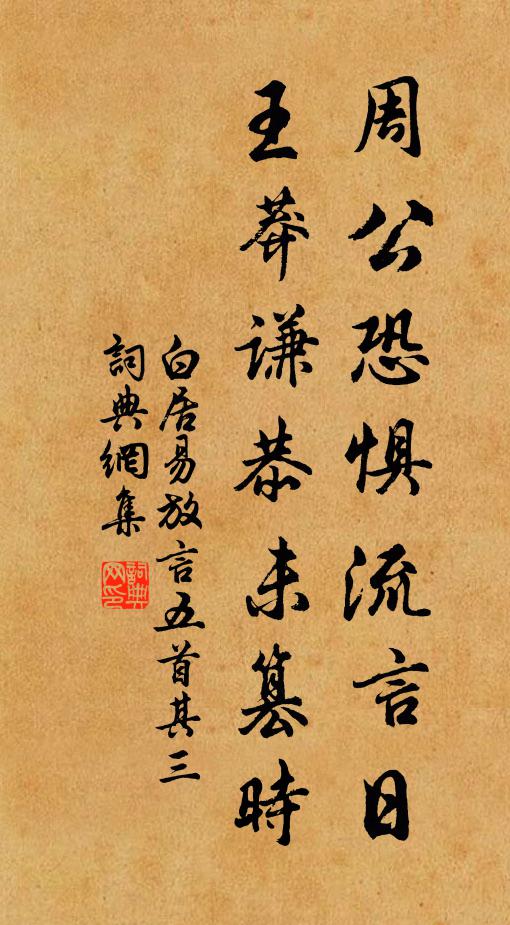 周公恐懼流言日
王莽謙恭未篡時
白居易放言五首其三
詞典網集
詞典
网印